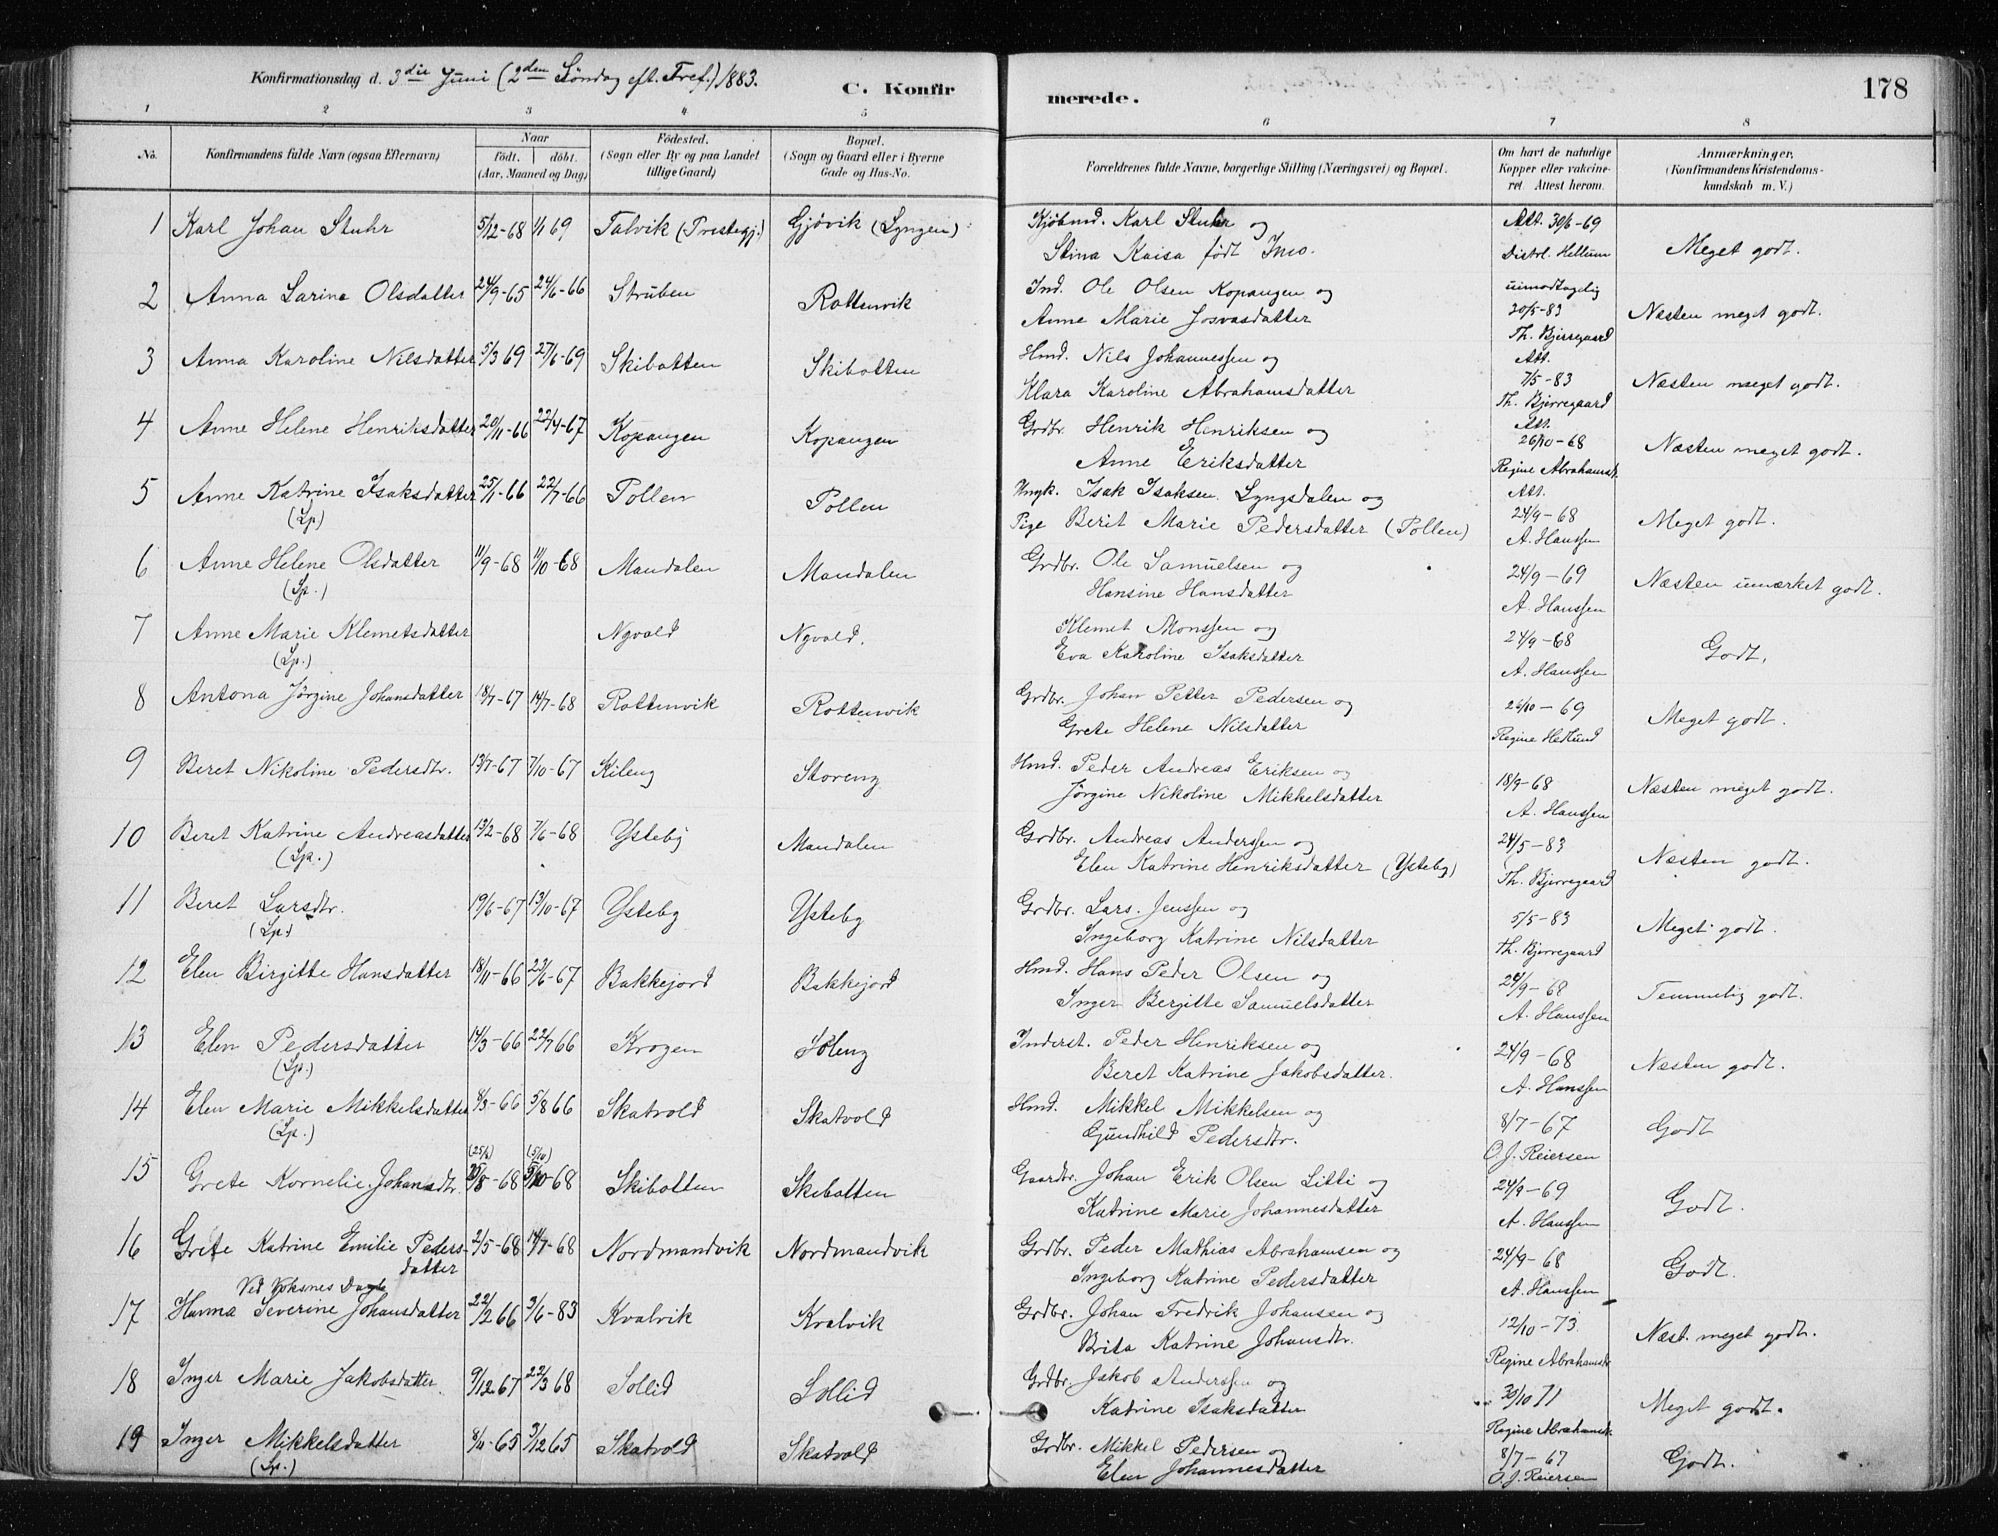 Konfirmationsdag d. 3die Juni (2den Søndag eft. Tref.) 1883.
C. Konfirmerede.
178
1 2 3 4 5 6 7 8
No. Konfirmandens fulde Navn (ogsaa Efternavn) Naar født. døbt. (Aar, Maaned og Dag) Fødested. (Sogn eller By og paa Landet tillige Gaard) Bopæl. (Sogn og Gaard eller i Byerne Gade og Hus-No. Forældrenes fulde Navne, borgerlige Stilling (Næringsvei) og Bopæl. Om havt de naturlige Kopper eller vakcineret. Attest herom. Anmærkninger. (Konfirmandens Kristendomskundskab m. V.)
1 Karl Johan Stuhr 5/12-68 1/1 69 Talvik (Prestegj.) Gjøvik (Lyngen) Kjøbmd. Karl Stuhr og Att. 30/6-69 Meget godt.
Stina Kaisa født Distrl. Hellum
2 Anna Larine Olsdatter 24/9-65 24/6-66 Struben Rottenvik Ind. Ole Olsen Kopangen og uimodtagelig Næsten meget godt.
Anne Marie Josvasdatter 20/5-83 Th. Bjerregaard
3 Anna Karoline Nilsdatter 5/3 69 27/6-69 Skibotten Skibotten Hmd. Nils Johannessen og Att. 7/5-83 Næsten meget godt.
Klara Karoline Abrahamsdatter Th. Bjerregaard
4 Anne Helene Henriksdatter 20/11-66 22/4-67 Kopangen Kopangen Grdbr. Henrik Henriksen og Att. 26/10-68 Næsten meget godt.
Anne Eriksdatter Regine Abrahamsdt.
5 Anne Katrine Isaksdatter 25/1-66 22/7-66 Pollen Pollen Ungk. Isak Isaksen Lyngsdalen og Att. 24/9-68 Meget godt.
(Lp.) Pige Berit Marie Pedersdatter (Pollen) A. Hanssen
6 Anne Helene Olsdatter 11/9-68 11/10-68 Mandalen Mandalen Grdbr. Ole Samuelsen og 24/9-69 Næsten umærket godt.
(Lp.) Hansine Hansdatter A. Hanssen
7 Anne Marie Klemetsdatter Ngvold Ngvold. Klemet Monssen og 24/9-68 Godt.
(Lp.) Eva Karoline Isaksdatter A. Hanssen
8 Antona Jørgine Johansdatter 18/7-67 14/7-68 Rottenvik Rottenvik Grdbr. Johan Petter Pedersen og 26/10-69 Meget godt.
Grete Helene Nilsdatter Regine Hetlund
9 Beret Nikoline Pedersdtr. 13/7-67 7/10-67 Kileng Storeng Hmd. Peder Andreas Eriksen og 18/9-68 Næsten meget godt.
Jørgine Nikoline Mikkelsdatter A. Hanssen
10 Beret Katrine Andreasdatter 13/2-68 7/6-68 Ysteby Mandalen Grdbr. Andreas Anderssen og 24/5-83 Næsten godt.
(Lp.) Elen Katrine Henriksdatter (Ysteby) Th. Bjerregaard
11 Beret Larsdtr. 19/6-67 13/10-67 Ysteby Ysteby Grdbr. Lars. Jenssen og 5/5-83 Meget godt.
(Lp.) Ingeborg Katrine Nilsdatter Th. Bjerregaard
12 Elen Birgitte Hansdatter 18/11-66 23/6-67 Bakkejord Bakkejord Hmd. Hans Peder Olsen og 24/9-68 Temmelig godt.
Inger Bergitte Samuelsdatter A. Hanssen
13 Elen Pedersdatter 14/3-66 22/7 66 Krogen Søleng Inderst. Peder Henriksen og 24/9-68 Næsten godt.
(Lp.) Beret Katrine Jakobsdatter. A. Hanssen
14 Elen Marie Mikkelsdatter 8/3-66 5/8 66 Skatvold Skatvold Hmd. Mikkel Mikkelsen og 8/7-67 Godt
(Lp.) Gundhild Pedersdtr. O. J. Reiersen
15 Grete Kornelie Johansdtr. 68 5/10-68 (5/10) Skibotten Skibotten Gaardbr. Johan Erik Olsen Litti og 24/9-69 Godt.
Katrine Marie Johannesdatter A. Hanssen
16 Grete Katrine Emilie Pedersdatter 2/5-68 14/7-68 Nordmandvik Nordmandvik Grdbr. Peder Mathias Abrahamsen og 24/9-68 Godt.
Ingeborg Katrine Pedersdatter A. Hanssen
Ved Voksnes Daab
17 Hanna Severine Johansdatter 22/2 66 3/6-83 Kvalvik Kvalvik Grdbr. Johan Fredrik Johanssen og 12/10-73 Næst. meget godt.
Brita Katrine Johansdtr. Regine Abrahamsdt.
18 Inger Marie Jakobsdatter. 9/12 67 22/3 68 Sollid Sollid Grdbr. Jakob Anderssen og 30/10 71 Meget godt.
Katrine Isaksdatter Regine Abrahamsdt.
19 Inger Mikkelsdatter 8/11-65 3/12 65 Skatvold Skatvold Grdbr. Mikkel Pedersen og 8/7-67 Godt.
(Lp.) Elen Johannesdatter O. J. Reiersen